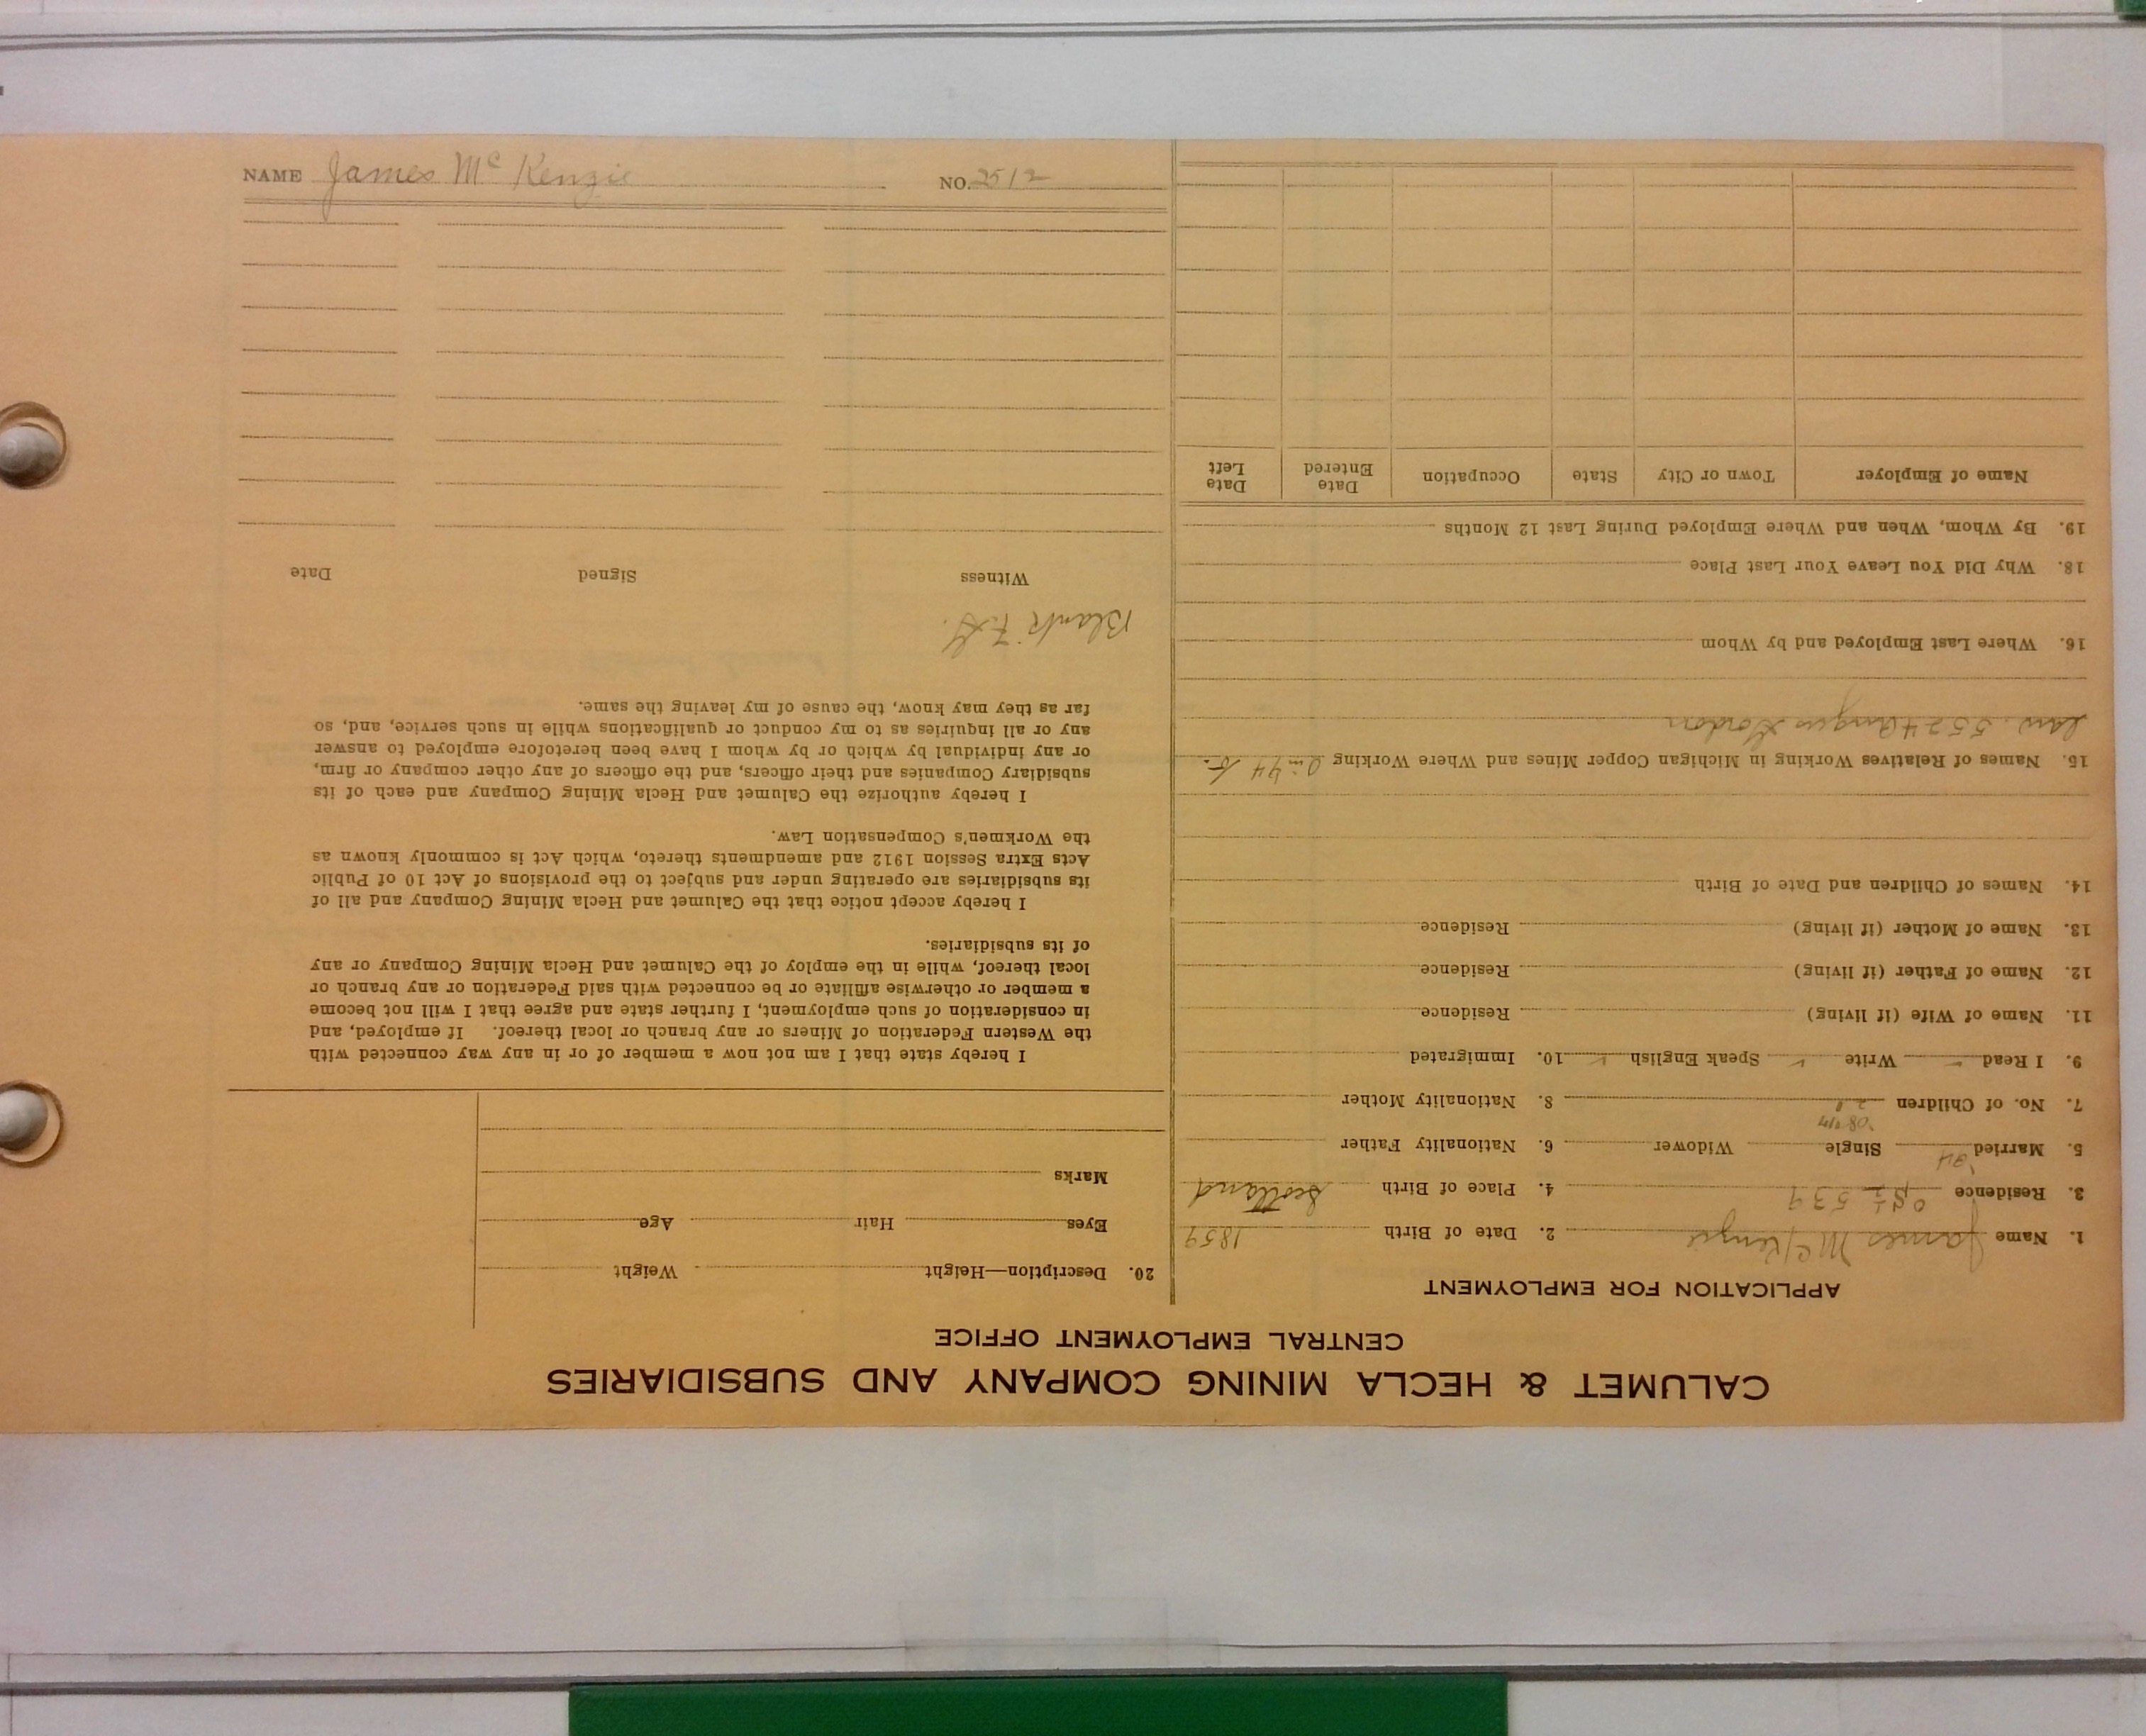 CALUMET & HECLA MINING COMPANY AND SUBSIDIARIES
CENTRAL EMPLOYMENT OFFICE
APPLICATION FOR EMPLOYMENT
1. Name James McKenzie 2. Date of Birth 1859
3. Residence 539 4. Place of Birth Scotland
5. Married '84 Single Widower 6. Nationality Father
'08
7. No. of Children 8. Nationality Mother
9. I Read Write Speak English 10. Immigrated
11. Name of Wife (if living) Residence
12. Name of Father (if living) Residence
13. Name of Mother (if living) Residence
14. Names of Children and Date of Birth
15. Names of Relatives Working in Michigan Copper Mines and Where Working
law. 5524 Angus Gordon
16. Where Last Employed and by Whom
18. Why Did You Leave Your Last Place
19. By Whom, When and Where Employed During Last 12 Months
Name of Employer Town or City State Occupation Date Entered Date Left
20. Description—Height Weight
Eyes Hair Age
Marks
I hereby state that I am not now a member of or in any way connected with
the Western Federation of Miners or any branch or local thereof. If employed, and
in consideration of such employment, I further state and agree that I will not become
a member or otherwise affiliate or be connected with said Federation or any branch or
local thereof, while in the employ of the Calumet and Hecla Mining Company or any
of its subsidiaries.
I hereby accept notice that the Calumet and Hecla Mining Company and all of
its subsidiaries are operating under and subject to the provisions of Act 10 of Public
Acts Extra Session 1912 and amendments thereto, which Act is commonly known as
the Workmen's Compensation Law.
I hereby authorize the Calumet and Hecla Mining Company and each of its
subsidiary Companies and their officers, and the officers of any other company or firm,
or any individual by which or by whom I have been heretofore employed to answer
any or all inquiries as to my conduct or qualifications while in such service, and, so
far as they may know, the cause of my leaving the same.
Blank
Witness Signed Date
NAME James McKenzie NO. 2512